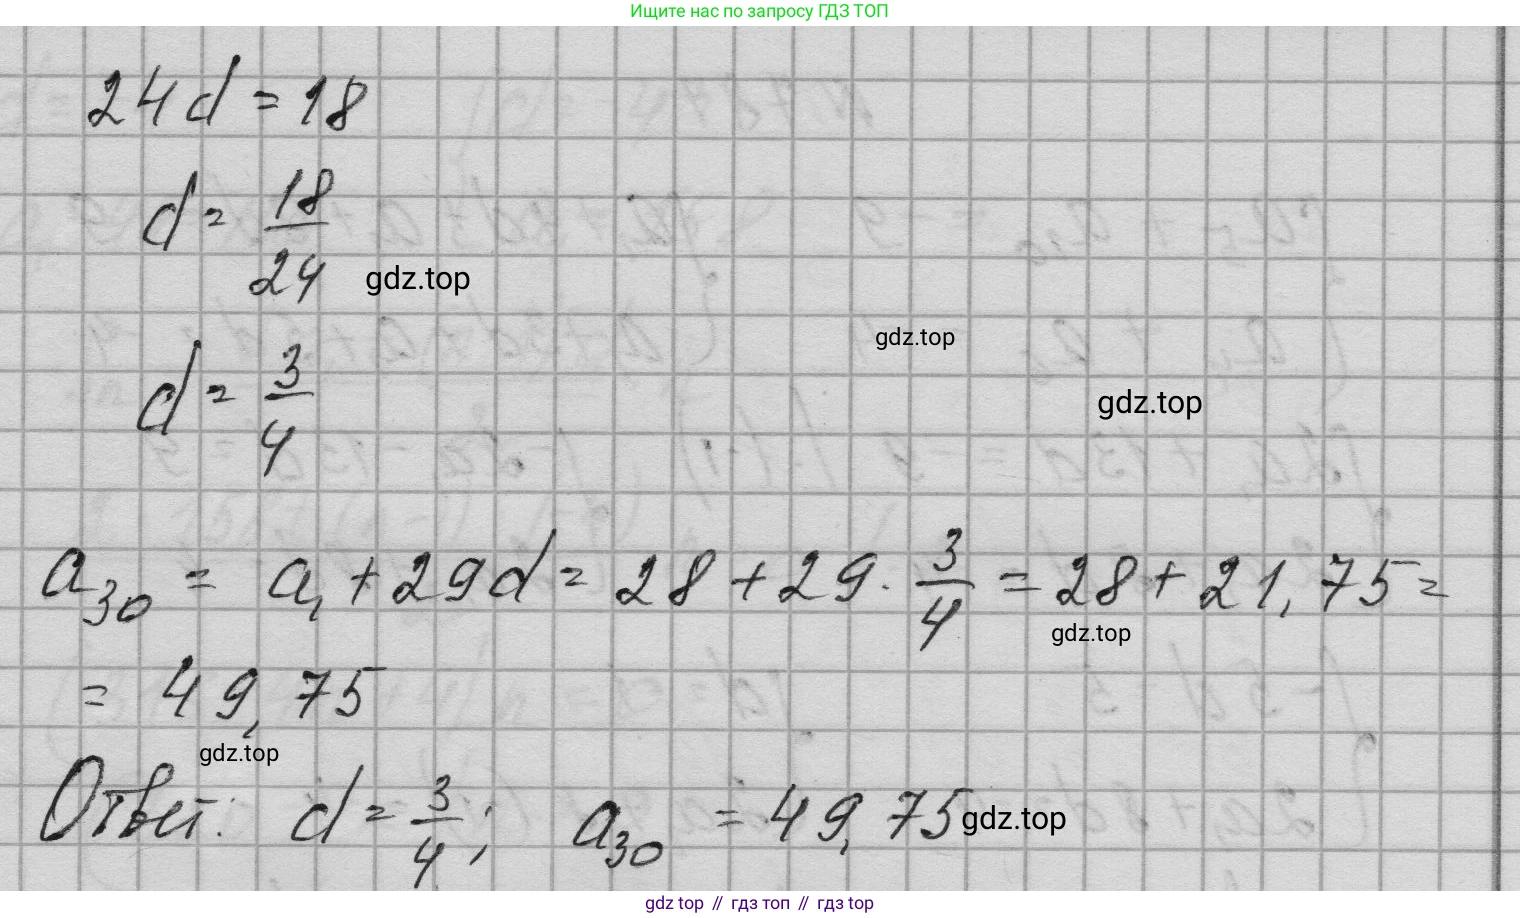 Ищите нас по запросу ГДЗ ТОП
24d = 18
d = 18/24
gdz.top
gdz.top
d = 3/4
gdz.top
a₃₀ = a₁ + 29d = 28 + 29 · 3/4 = 28 + 21,75 =
gdz.top
= 49,75
gdz.top
Ответ: d = 3/4; a₃₀ = 49,75
gdz.top
gdz top // гдз топ // гдз top